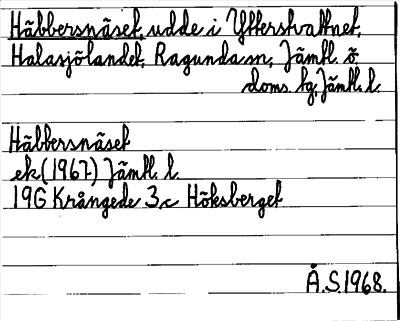 Häbbersnäset, udde i Ytterstvattnet,
Halasjölandet, Ragunda sn, Jämtl. ö.
doms. hg, Jämtl. l.
Häbbersnäset
ek (1967) Jämtl. l.
19G Krångede 3c Höksberget
Å.S. 1968.